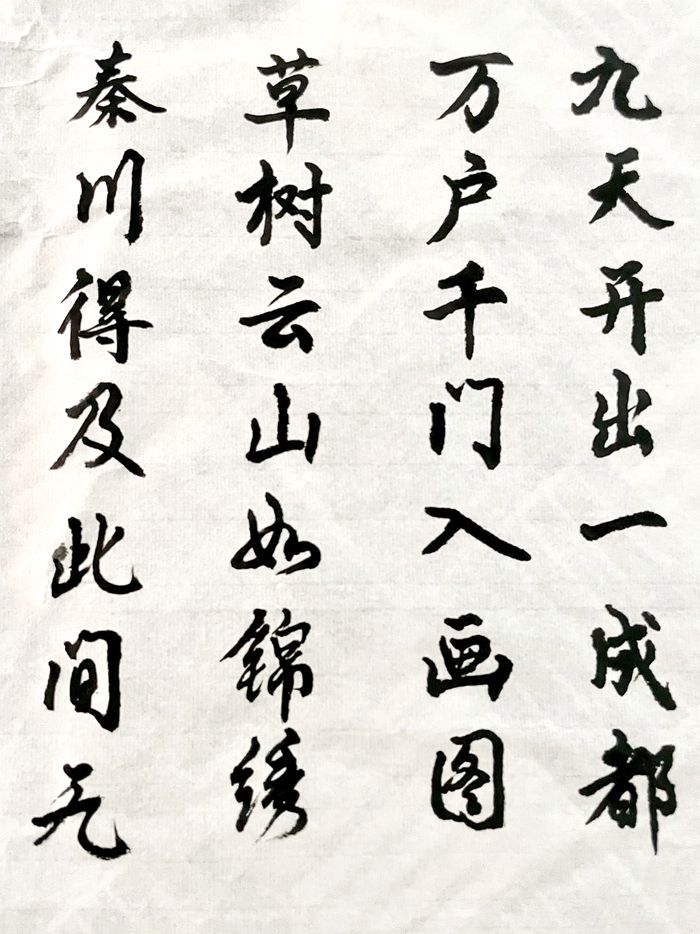 九天开出一成都
万户千门入画图
草树云山如錦绣
秦川得及此间无